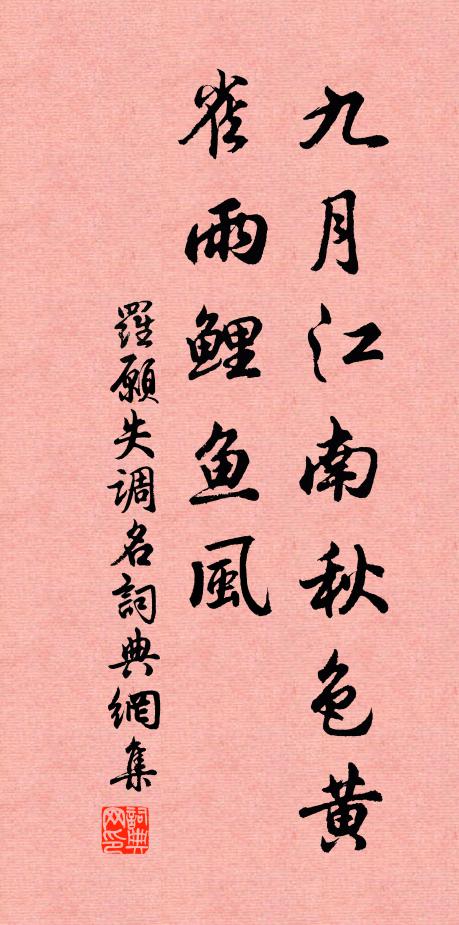 九月江南秋色黄
雀雨鲤鱼風
羅願失调名詞典網集
詞典网印